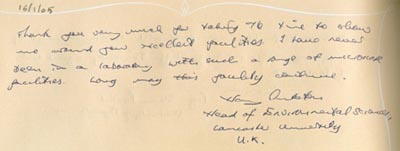 16/1/05
Thank you very much for taking the time to show
me around your excellent facilities. I have never
been in a laboratory with such a range of microscope
facilities. Long may this facility continue.
Head of Environmental Science,
Lancaster University
U.K.